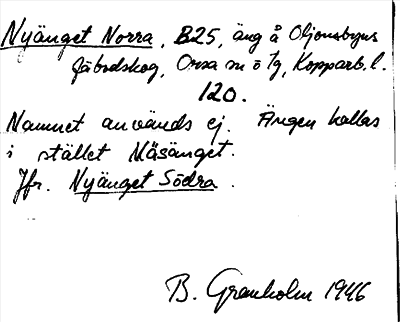 Nyänget Norra, B25, äng å Oljonsbyns
fäbodskog, Orsa sn o tg, Kopparb. l.
120.
Namnet används ej. Ängen kallas
i stället Måsänget.
Jfr. Nyänget Södra.
B. Granholm 1946